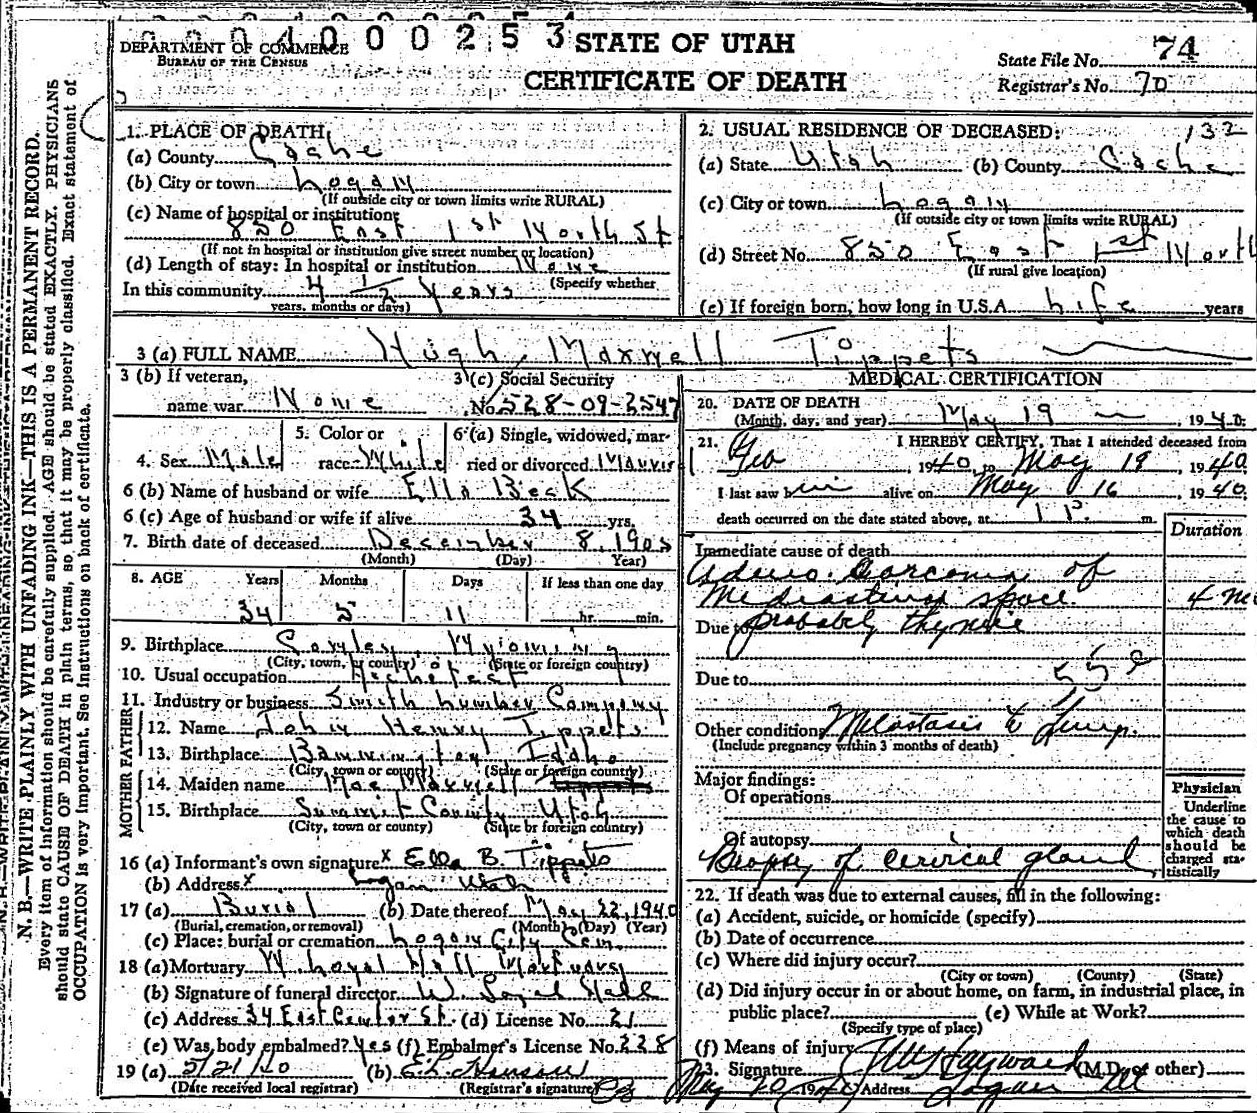 000400025354
DEPARTMENT OF COMMERCE
BUREAU OF THE CENSUS
STATE OF UTAH
CERTIFICATE OF DEATH
State File No. 74
Registrar's No. 70
N. B.—WRITE PLAINLY WITH UNFADING INK—THIS IS A PERMANENT RECORD.
Every item of information should be carefully supplied. AGE should be stated EXACTLY. PHYSICIANS
should state CAUSE OF DEATH in plain terms, so that it may be properly classified. Exact statement of
OCCUPATION is very important. See instructions on back of certificate.
1. PLACE OF DEATH:
(a) County Cache
(b) City or town Logan
(If outside city or town limits write RURAL)
(c) Name of hospital or institution:
850 East 1st North St
(If not in hospital or institution give street number or location)
(d) Length of stay: In hospital or institution None
(Specify whether
In this community 4 1/2 years
years, months or days)
2. USUAL RESIDENCE OF DECEASED: 132
(a) State Utah (b) County Cache
(c) City or town Logan
(If outside city or town limits write RURAL)
(d) Street No. 850 East 1st North
(If rural give location)
(e) If foreign born, how long in U.S.A. Life years
3 (a) FULL NAME Hugh Maxwell Tippets
3 (b) If veteran,
name war None
3 (c) Social Security
No. 528-09-2547
4. Sex Male
5. Color or
race White
6 (a) Single, widowed, mar-
ried or divorced Married
6 (b) Name of husband or wife Ella Beck
6 (c) Age of husband or wife if alive 34 yrs.
7. Birth date of deceased December 8, 1905
(Month) (Day) Year)
8. AGE Years Months Days If less than one day
34 5 11 hr. min.
9. Birthplace Cowley, Wyoming
(City, town, or county) (State or foreign country)
10. Usual occupation
11. Industry or business Smith Lumber Company
FATHER
12. Name John Henry Tippets
13. Birthplace Bennington Idaho
(City, town or county) (State or foreign country)
MOTHER
14. Maiden name Mae Maxwell
15. Birthplace Summit County Utah
(City, town or county) (State or foreign country)
16 (a) Informant's own signature x Ella B. Tippets
(b) Address x Logan Utah
17 (a) Burial (b) Date thereof May 22, 1940
(Burial, cremation, or removal) (Month) (Day) (Year)
(c) Place: burial or cremation Logan City Cem.
18 (a) Mortuary W. Loyal Hall Mortuary
(b) Signature of funeral director W. Loyal Hall
(c) Address 34 East Center St. (d) License No. 21
(e) Was body embalmed? Yes (f) Embalmer's License No. 228
19 (a) 5/21/40 (b) E.L. Hansen
(Date received local registrar) (Registrar's signature)
MEDICAL CERTIFICATION
20. DATE OF DEATH
(Month, day, and year) May 19, 1940
21. I HEREBY CERTIFY, That I attended deceased from
1940, to May 19, 1940
I last saw him alive on May 16, 1940.
death occurred on the date stated above, at 1 P. m.
Duration
Immediate cause of death
Adeno. Sarcoma of
Mediastinal space 4 mo
Due to probably thymic
Due to 55e
Other conditions Metastasis to Lung.
(Include pregnancy within 3 months of death)
Major findings:
Of operations
Of autopsy
Biopsy of cervical gland
Physician
Underline
the cause to
which death
should be
charged sta-
tistically
22. If death was due to external causes, fill in the following:
(a) Accident, suicide, or homicide (specify)
(b) Date of occurrence
(c) Where did injury occur?
(City or town) (County) (State)
(d) Did injury occur in or about home, on farm, in industrial place, in
public place? (e) While at Work?
(Specify type of place)
(f) Means of injury
23. Signature Hayward (M.D. or other)
May 20 1940 Address Logan Ut